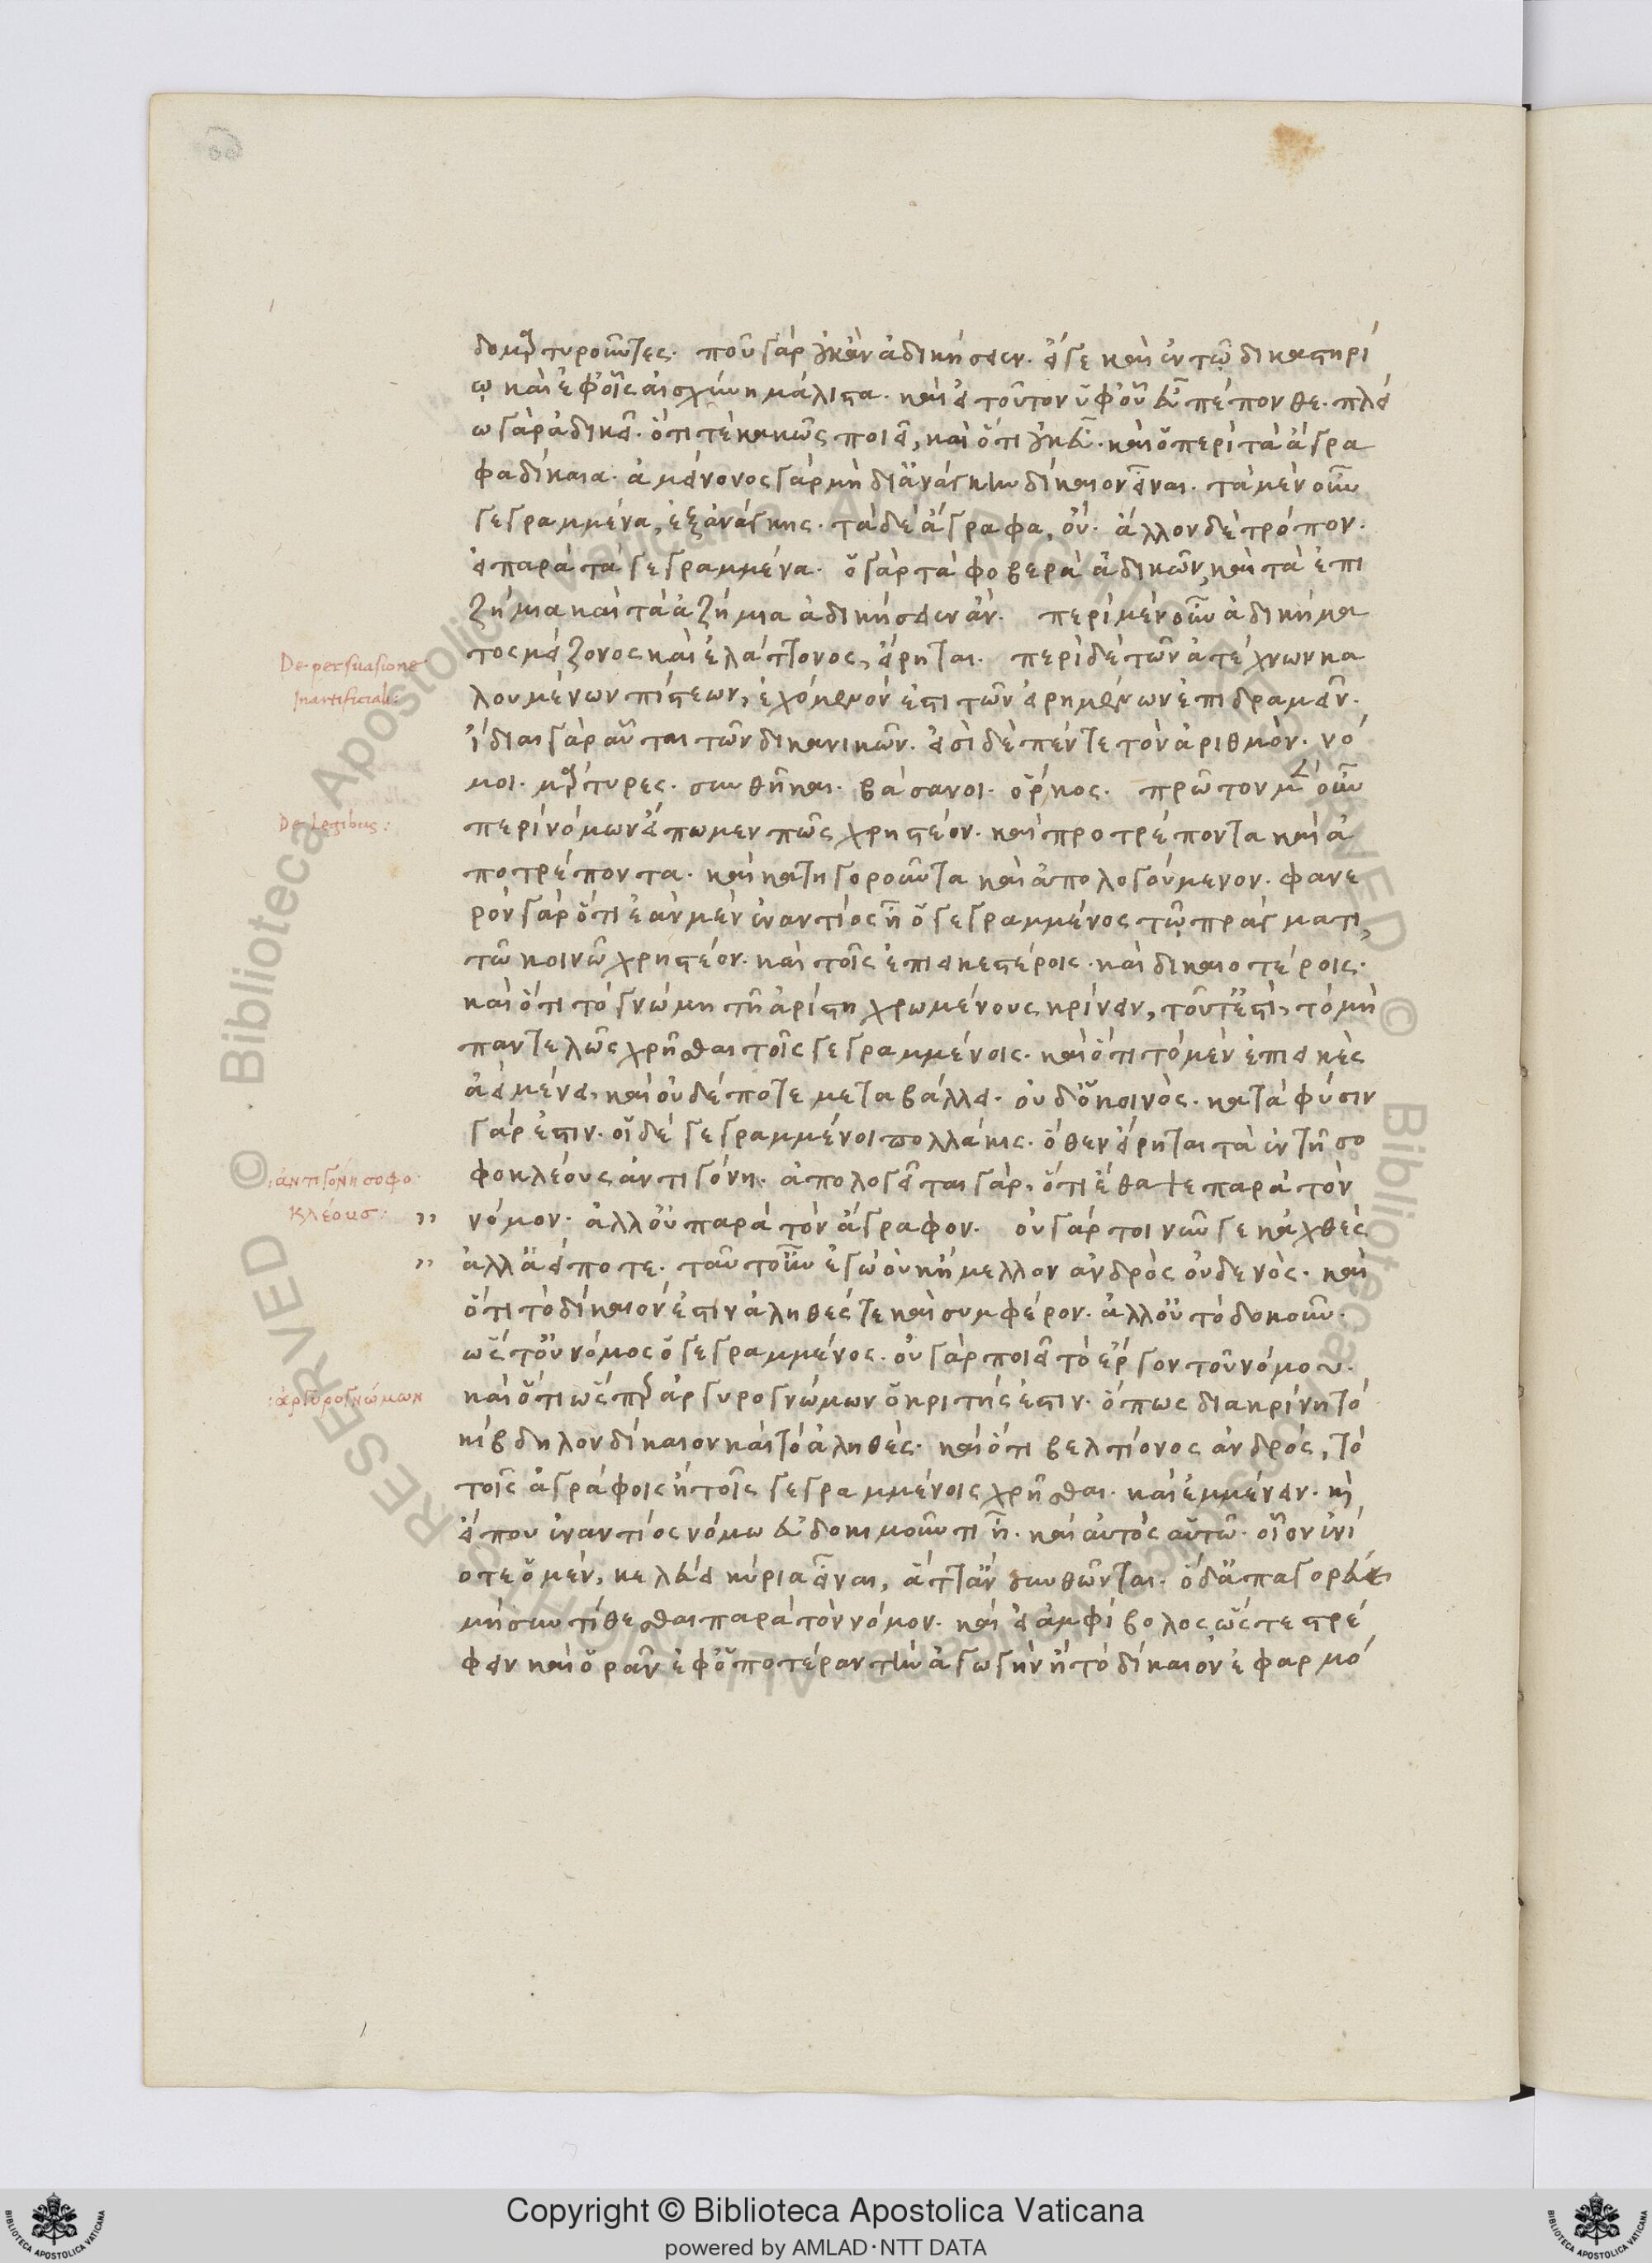 δομαρτυροῦντες. ποῦ γὰρ οὐκ ἂν ἀδικήσειεν. εἴγε καὶ ἐν τῷ δικαστηρί
ῳ καὶ ἐφ' οἷς αἰσχύνη μάλιστα. καὶ εἰ τοῦτον ὑφ' οὗ εὖ πέπονθε. πλεί
ω γὰρ ἀδικεῖ. ὅτι τὲ κακῶς ποιεῖ, καὶ ὅτι οὐκ εὖ. καὶ ὁ περὶ τὰ ἄγρα
φα δίκαια. ἀμείνονος γὰρ μὴ δι' ἀνάγκην δίκαιον εἶναι. τὰ μὲν οὖν
γεγραμμένα, ἐξ ἀνάγκης. τὰ δὲ ἄγραφα, οὔ. ἄλλον δὲ τρόπον.
εἰ παρὰ τὰ γεγραμμένα. ὁ γὰρ τὰ φοβερὰ ἀδικῶν, καὶ τὰ ἐπι
ζήμια καὶ τὰ ἀζήμια ἀδικήσειεν ἄν. περὶ μὲν οὖν ἀδικήμα
De persuasione τος μείζονος καὶ ἐλάττονος, εἴρηται. περὶ δὲ τῶν ἀτέχνων κα
Inartificiali: λουμένων πίστεων, ἐχόμενόν ἐστι τῶν εἰρημένων ἐπιδραμεῖν.
ἴδιαι γὰρ αὗται τῶν δικανικῶν. εἰσὶ δὲ πέντε τὸν ἀριθμόν. νό
μοι. μάρτυρες. συνθῆκαι. βάσανοι. ὅρκος. πρῶτον μὲν οὖν
De Legibus: περὶ νόμων εἴπωμεν πῶς χρηστέον. καὶ προτρέποντα καὶ ἀ
ποτρέποντα. καὶ κατηγοροῦντα καὶ ἀπολογούμενον. φανε
ρὸν γὰρ ὅτι ἐὰν μὲν ἐναντίος ᾖ ὁ γεγραμμένος τῷ πράγματι,
τῶ κοινῶ χρηστέον. καὶ τοῖς ἐπιεικεστέροις. καὶ δικαιοτέροις.
καὶ ὅτι τὸ γνώμη τῆ ἀρίστη χρωμένους κρίνειν, τοῦτ' ἐστὶ, τὸ μὴ
παντελῶς χρῆσθαι τοῖς γεγραμμένοις. καὶ ὅτι τὸ μὲν ἐπιεικὲς
ἀεὶ μένει. καὶ οὐδέποτε μεταβάλλει. οὐδ' ὁ κοινός. κατὰ φύσιν
γάρ ἐστιν. οἱ δὲ γεγραμμένοι πολλάκις. ὅθεν εἴρηται τὰ ἐν τῆ σο
:ἀντιγόνη σοφο φοκλέους ἀντιγόνη. ἀπολογεῖται γὰρ, ὅτι ἔθαψε παρὰ τὸν
κλέουσ: " νόμον. ἀλλ' οὐ παρὰ τὸν ἄγραφον. οὐ γάρ τοι νῦν γε κἀχθὲς
" ἀλλ' ἀεί ποτε. ταῦτ' οὖν ἐγὼ οὐκ ἤμελλον ἀνδρὸς οὐδενός. καὶ
ὅτι τὸ δίκαιόν ἐστιν ἀληθές τε καὶ συμφέρον. ἀλλ' οὐ τὸ δοκοῦν.
ὥστ' οὐ νόμος ὁ γεγραμμένος. οὐ γὰρ ποιεῖ τὸ ἔργον τοῦ νόμου.
:ἀργυρογνώμων καὶ ὅτι ὥσπερ ἀργυρογνώμων ὁ κριτής ἐστιν. ὅπως διακρίνη τὸ
κίβδηλον δίκαιον καὶ τὸ ἀληθές. καὶ ὅτι βελτίονος ἀνδρὸς, τὸ
τοῖς ἀγράφοις ἢ τοῖς γεγραμμένοις χρῆσθαι. καὶ ἐμμένειν. κὶ
εἴ που ἐναντίος νόμω εὐδοκιμοῦντι ἢ. καὶ αὐτὸς αὑτῶ. οἷον ἐνί
οτε ὁ μὲν, κελεύει κύρια εἶναι, ἅττ' ἂν συνθῶνται. ὁ δ' ἀπαγορεύει
μὴ συντίθεσθαι παρὰ τὸν νόμον. καὶ εἰ ἀμφίβολος ὥστε στρέ
φειν καὶ ὁρᾶν ἐφ' ὁποτέραν τὴν ἀγωγὴν ἢ τὸ δίκαιον ἐφαρμό
© Biblioteca Apostolica Vaticana ALL RIGHTS RESERVED
Copyright © Biblioteca Apostolica Vaticana
powered by AMLAD·NTT DATA
BIBLIOTECA APOSTOLICA VATICANA
BIBLIOTECA APOSTOLICA VATICANA